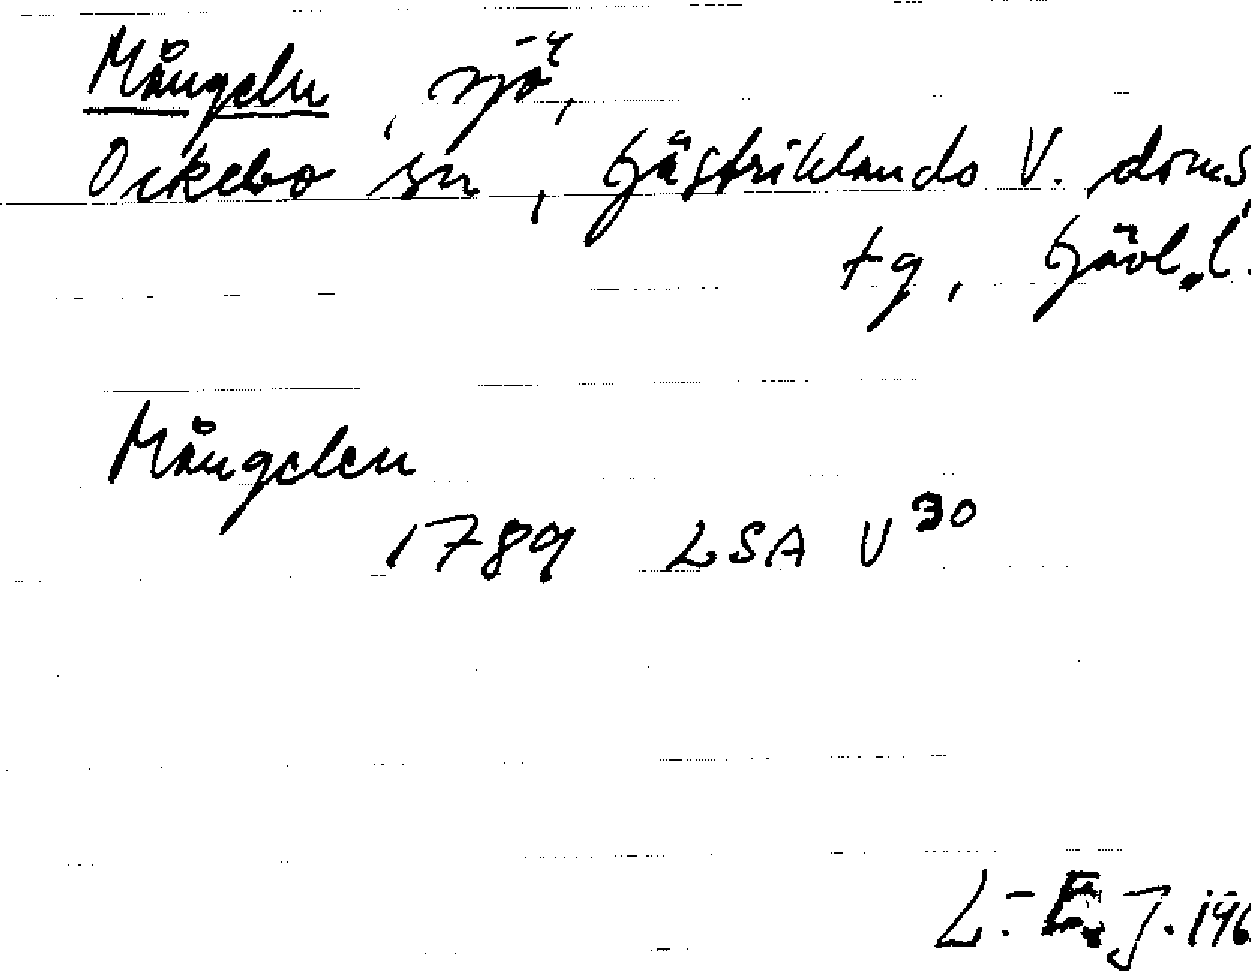 Mången, sjö,
Ockelbo sn, Gästriklands V. doms
tg, Gävl.l.
Mångelen
1789 LSA V 30
L.-E. J. 196